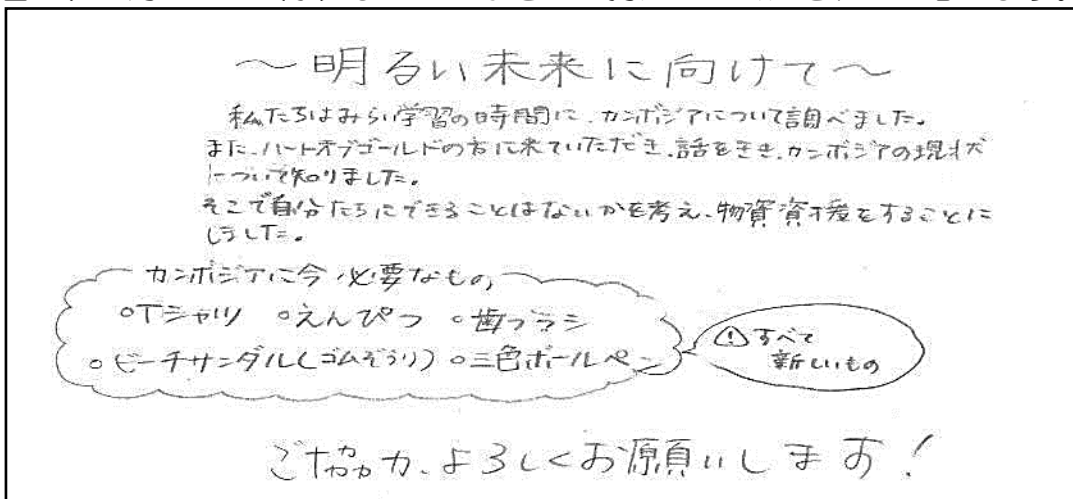 ～明るい未来に向けて～
私たちはみらい学習の時間に、カンボジアについて調べました。
また、ハートオブゴールドの方に来ていただき、話をきき、カンボジアの現状
について知りました。
そこで自分たちにできることはないかを考え、物資資援をすることに
しました。
カンボジアに今必要なもの
○Tシャツ ○えんぴつ ○歯ブラシ
○ビーチサンダル(ゴムぞうり) ○三色ボールペン
！すべて
新しいもの
ご協力、よろしくお願いします！